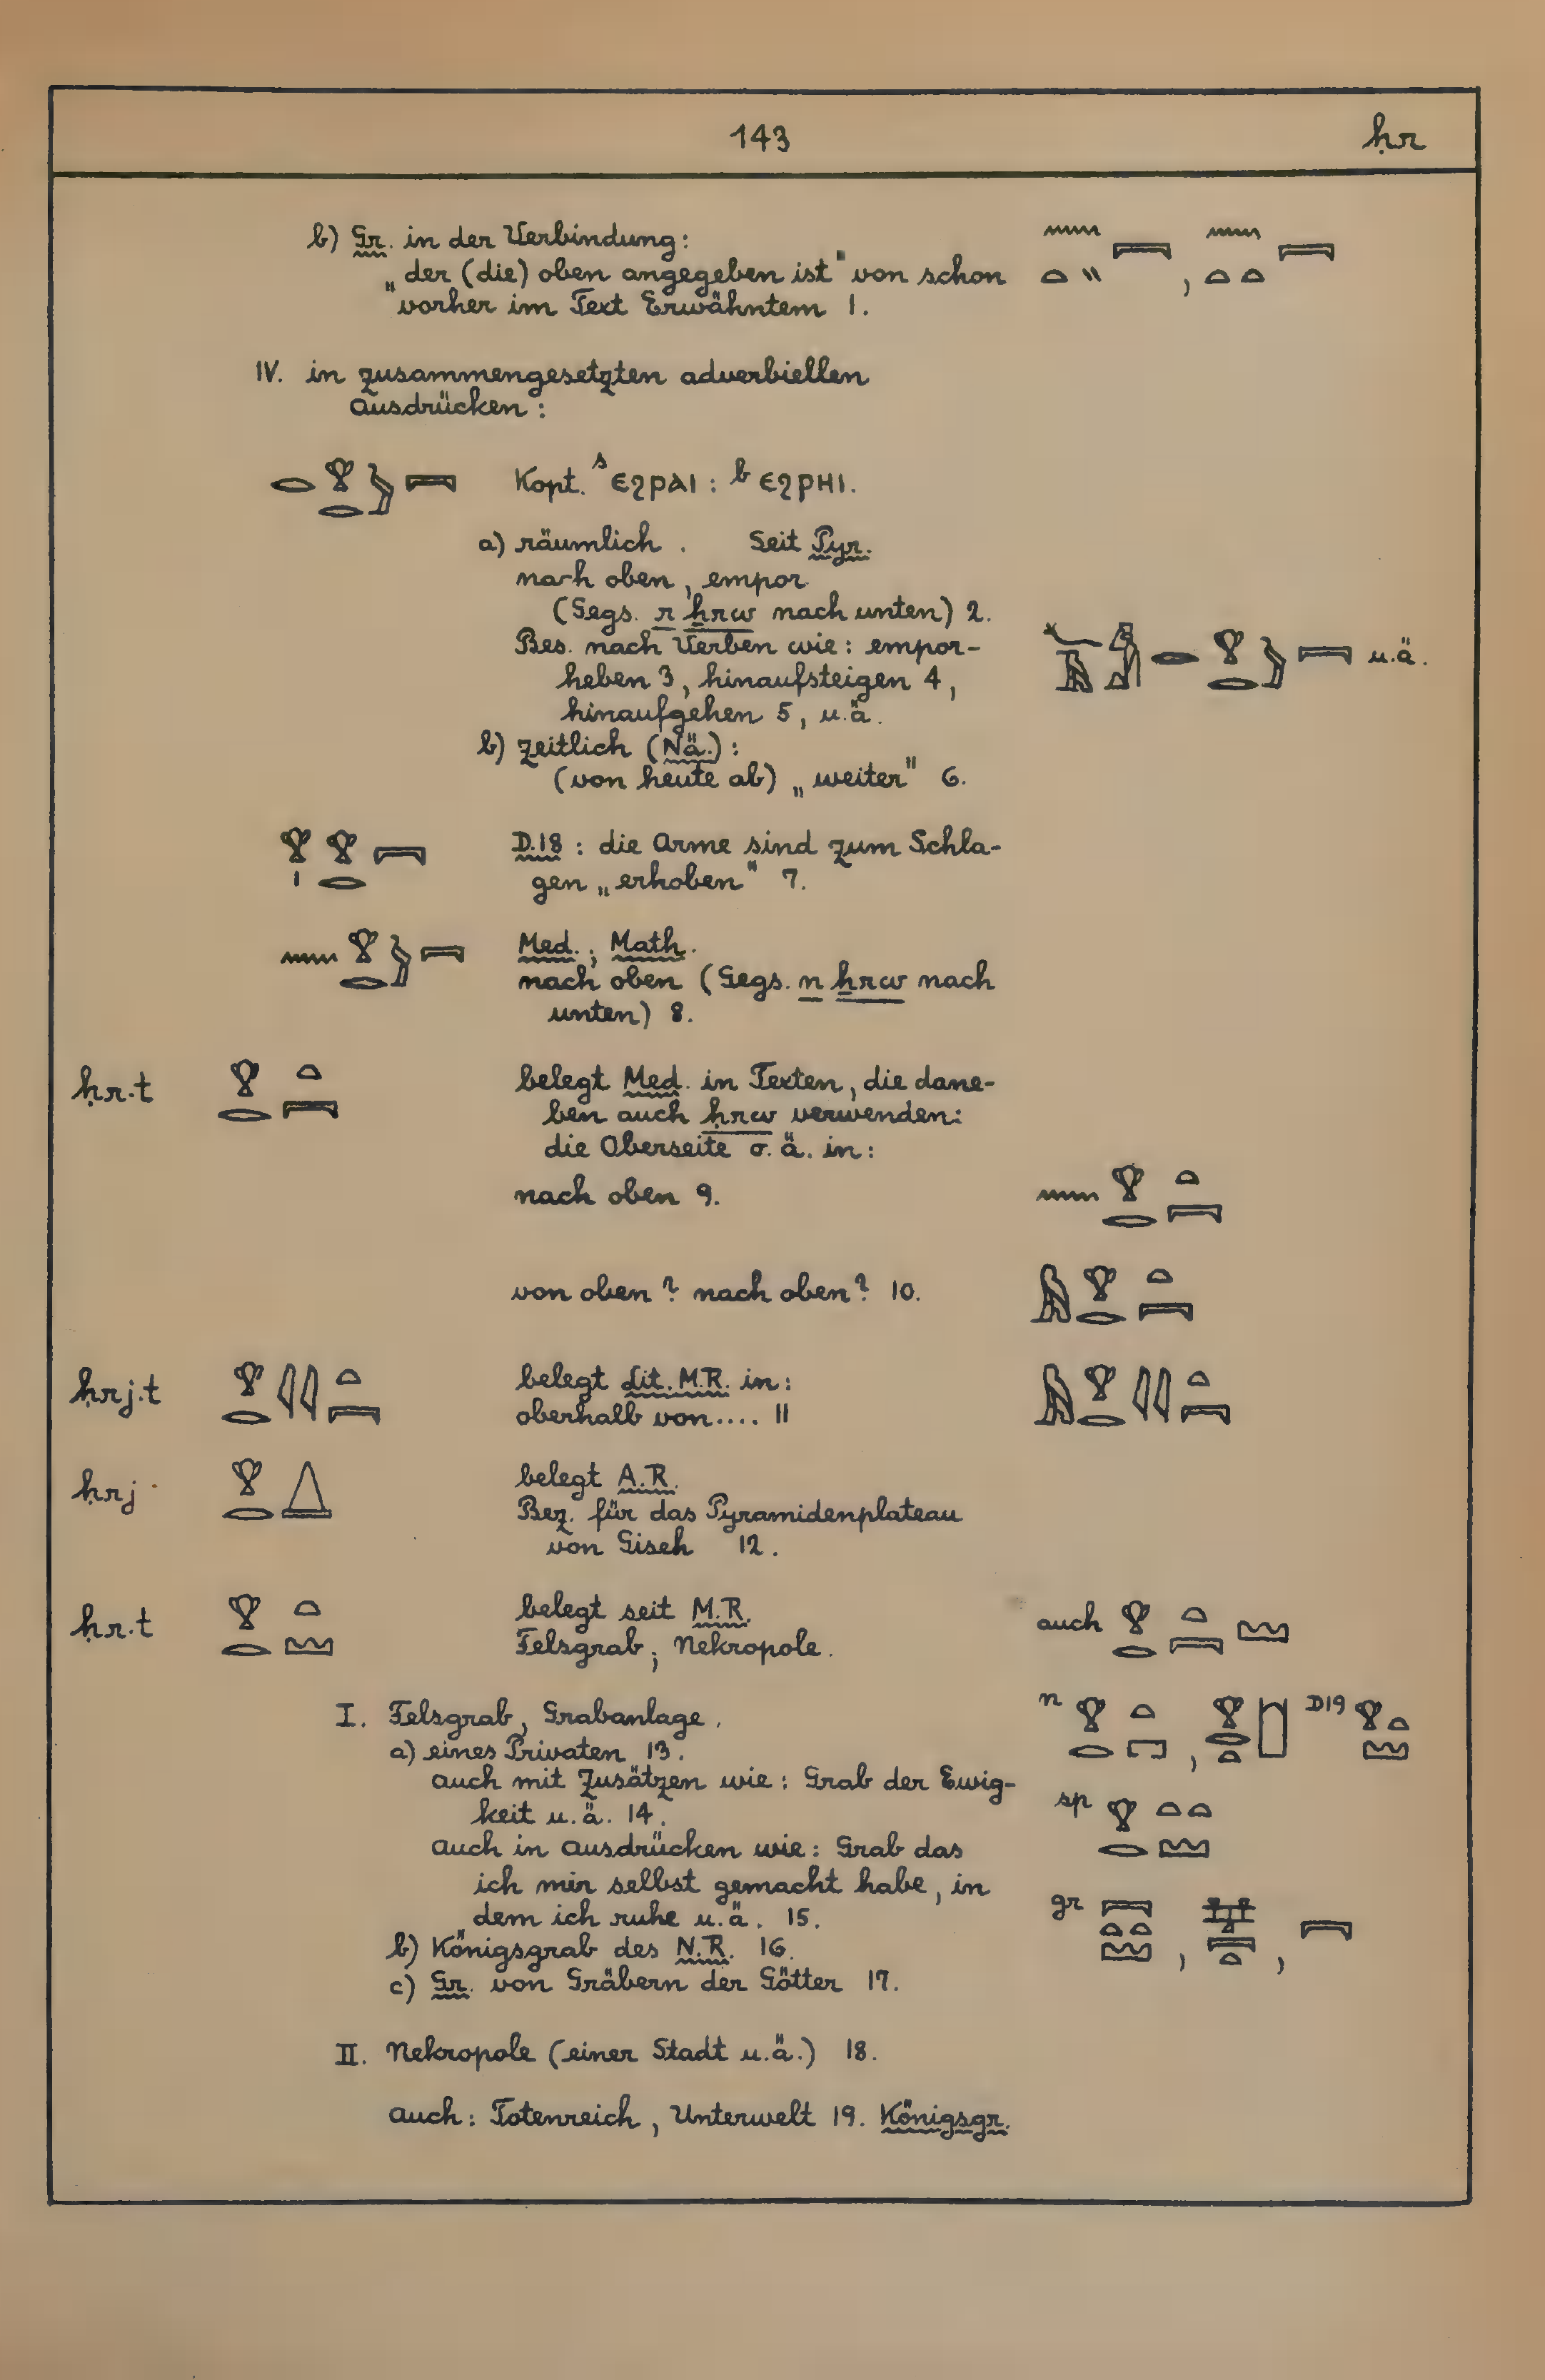 143 ḥr
b) Gr. in der Verbindung:
„der (die) oben angegeben ist" von schon
vorher im Text Erwähntem 1.
IV. in zusammengesetzten adverbiellen
Ausdrücken:
Kopt. ˢ ⲉϩⲣⲁⲓ : ᵇ ⲉϩⲣⲏⲓ.
a) räumlich. Seit Pyr.
nach oben, empor
(Gegs. r ẖrw nach unten) 2.
Bes. nach Verben wie: empor-
heben 3, hinaufsteigen 4, u.ä.
hinaufgehen 5, u.ä.
b) zeitlich (Nä.):
(von heute ab) „weiter" 6.
D.18 : die Arme sind zum Schla-
gen „erhoben" 7.
Med.; Math.
nach oben (Gegs. n ẖrw nach
unten) 8.
ḥr.t belegt Med. in Texten, die dane-
ben auch ḥrw verwenden:
die Oberseite o.ä. in:
nach oben 9.
von oben? nach oben? 10.
ḥrj.t belegt Lit. M.R. in:
oberhalb von.... 11
ḥrj belegt A.R.
Bez. für das Pyramidenplateau
von Giseh 12.
ḥr.t belegt seit M.R. auch
Felsgrab; Nekropole.
I. Felsgrab, Grabanlage. n , D19
a) eines Privaten 13.
auch mit Zusätzen wie: Grab der Ewig-
keit u.ä. 14. sp
auch in Ausdrücken wie: Grab das
ich mir selbst gemacht habe, in
dem ich ruhe u.ä. 15. gr , ,
b) Königsgrab des N.R. 16.
c) Gr. von Gräbern der Götter 17.
II. Nekropole (einer Stadt u.ä.) 18.
auch: Totenreich, Unterwelt 19. Königsgr.